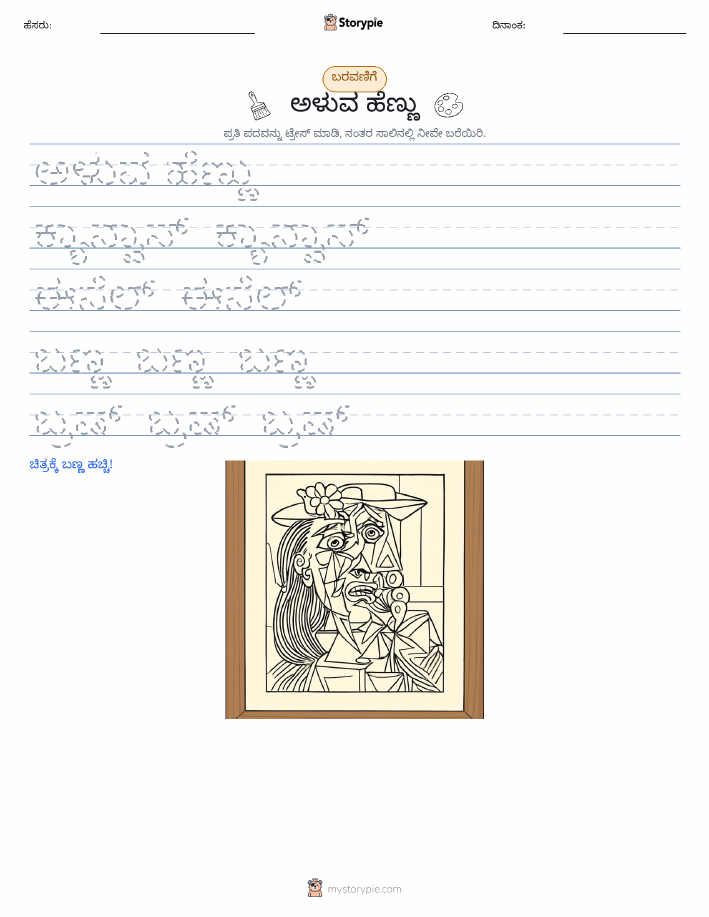 ಹೆಸರು: Storypie ದಿನಾಂಕ:
ಬರವಣಿಗೆ
ಅಳುವ ಹೆಣ್ಣು
ಪ್ರತಿ ಪದವನ್ನು ಟ್ರೇಸ್ ಮಾಡಿ, ನಂತರ ಸಾಲಿನಲ್ಲಿ ನೀವೇ ಬರೆಯಿರಿ.
ಅಳುವ ಹೆಣ್ಣು
ಕ್ಯಾನ್ವಾಸ್ ಕ್ಯಾನ್ವಾಸ್
ಈಸೆಲ್ ಈಸೆಲ್
ಬಣ್ಣ ಬಣ್ಣ ಬಣ್ಣ
ಬ್ರಷ್ ಬ್ರಷ್ ಬ್ರಷ್
ಚಿತ್ರಕ್ಕೆ ಬಣ್ಣ ಹಚ್ಚಿ!
mystorypie.com